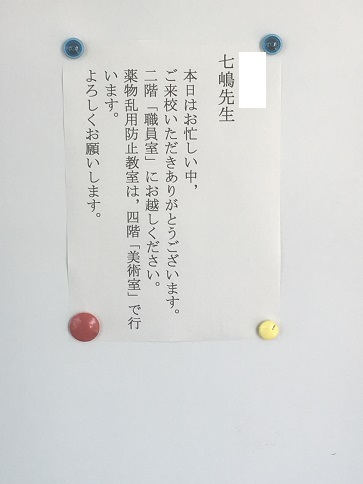 七嶋先生
本日はお忙しい中,
ご来校いただきありがとうございます。
二階「職員室」にお越しください。
薬物乱用防止教室は,四階「美術室」で行
います。
よろしくお願いします。